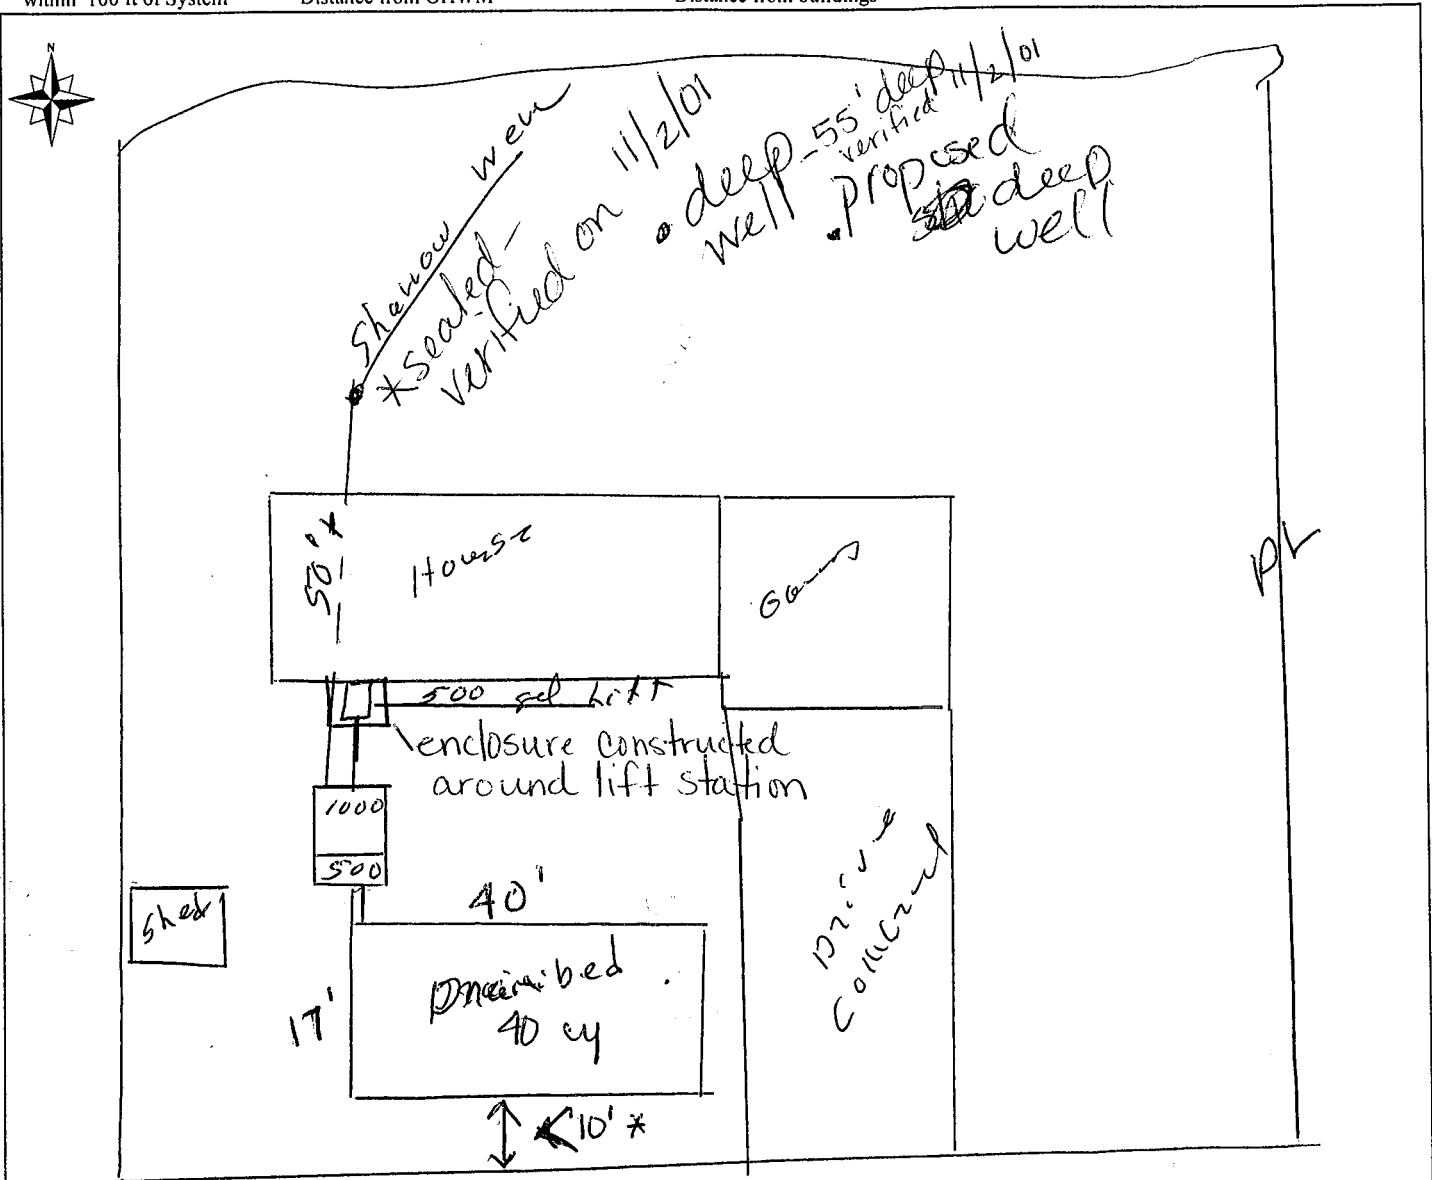 within 100 ft of System Distance from OHWM Distance from buildings
N
Shallow well
*sealed-
verified on 11/2/01
deep - 55' deep 11/2/01
well verified
proposed
deep
well
PL
50'*
House
500 gal Lift
enclosure constructed
around lift station
1000
500
40'
Shed
17'
Drainbed
40 cy
Drive
<10' *